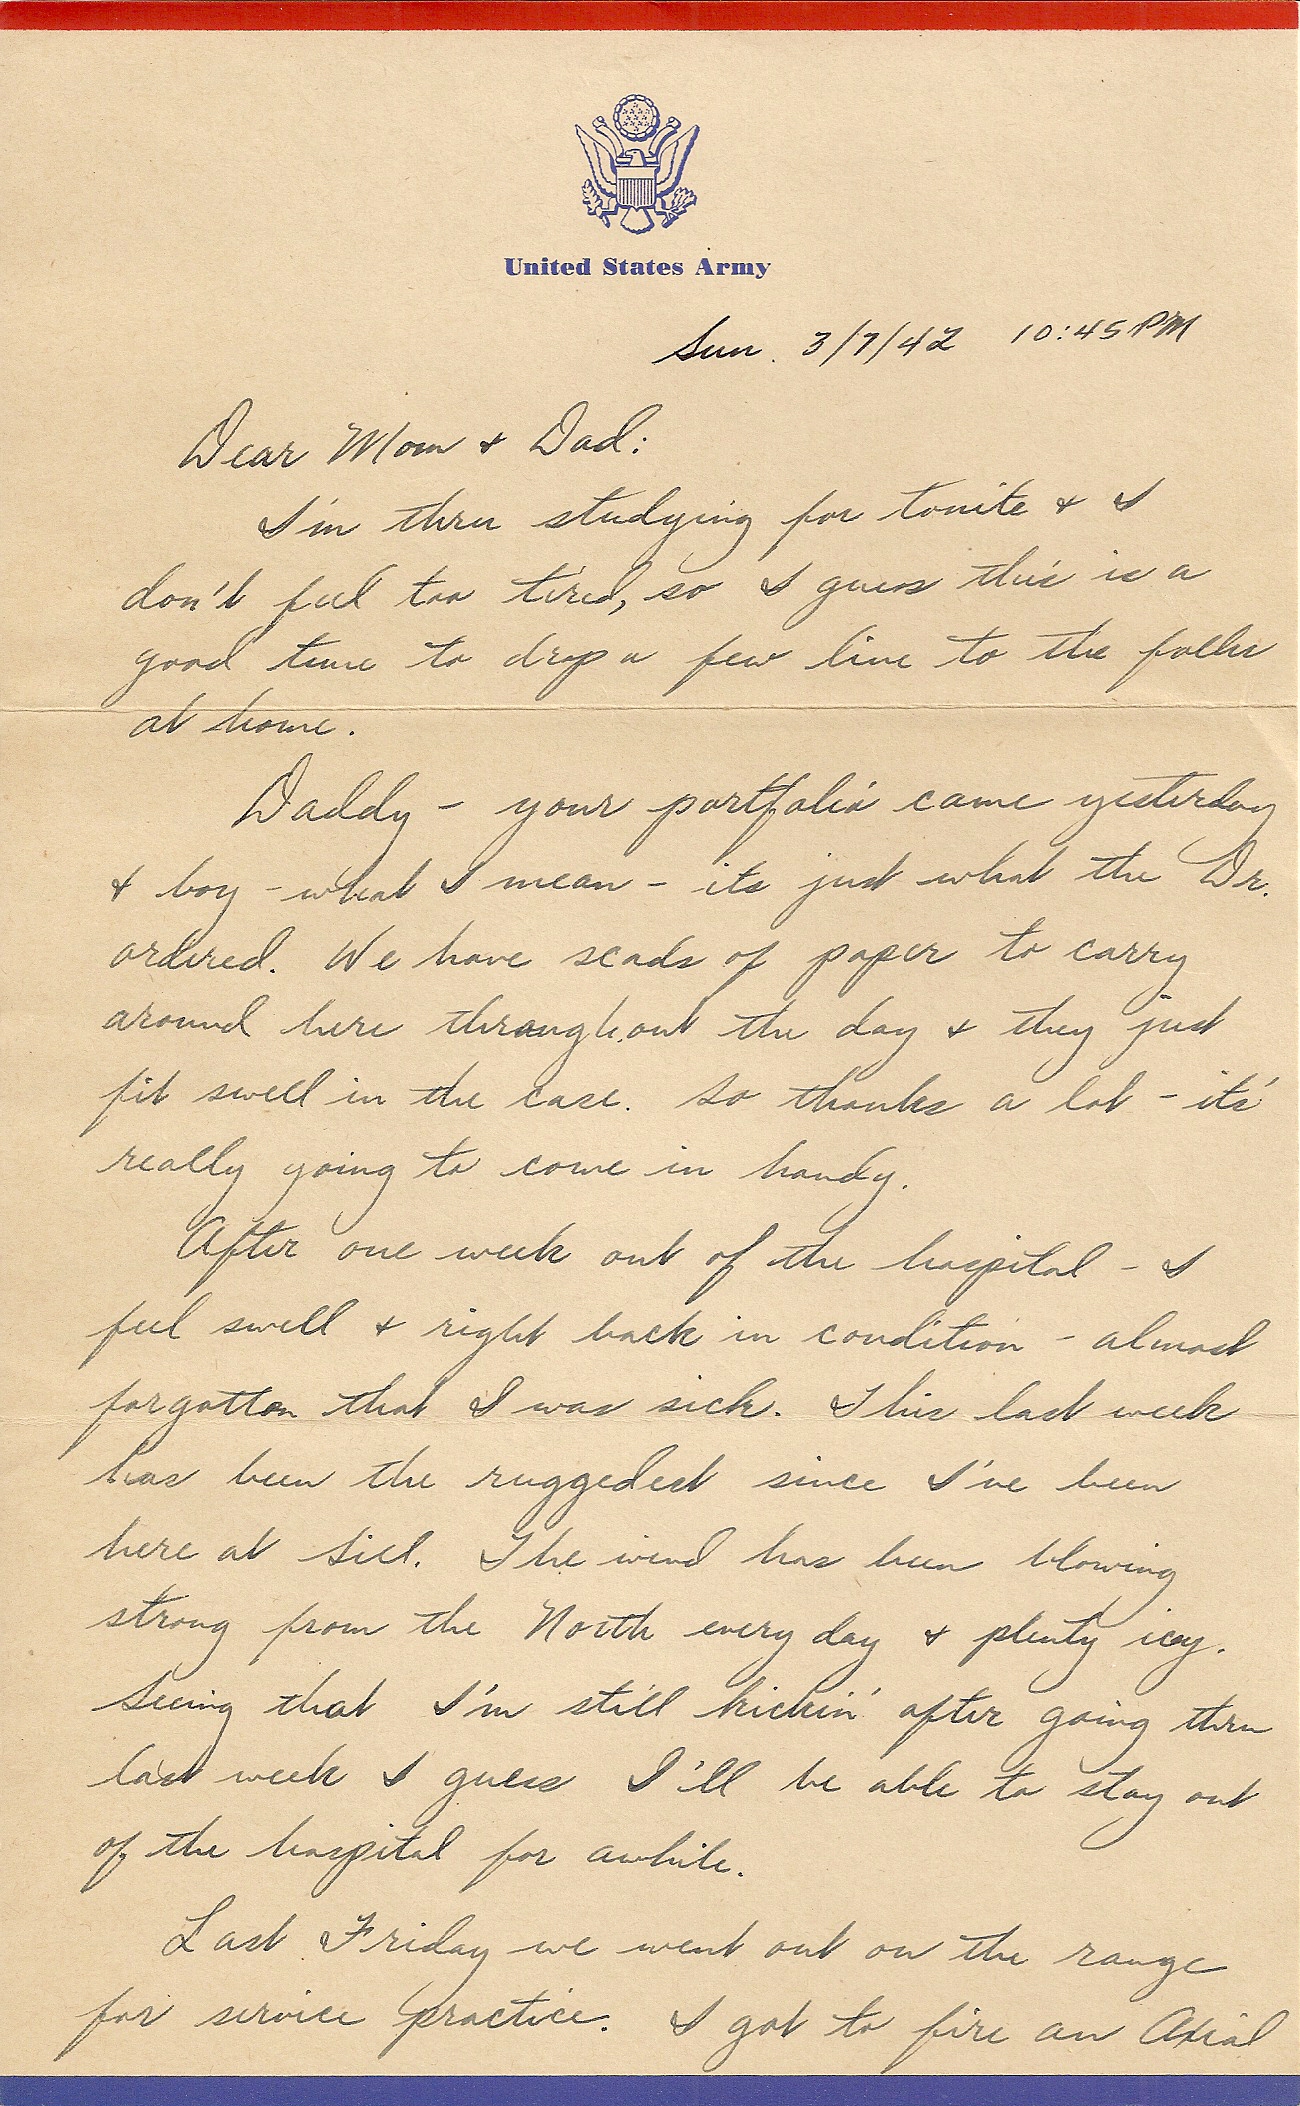 United States Army
Sun. 3/7/42 10:45 PM
Dear Mom & Dad:
I'm thru studying for tonite & I
don't feel too tired, so I guess this is a
good time to drop a few line to the folks
at home.
Daddy - your portfolio came yesterday
& boy - what I mean - its just what the Dr.
ordered. We have scads of paper to carry
around here throughout the day & they just
fit swell in the case. So thanks a lot - it's
really going to come in handy.
After one week out of the hospital - I
feel swell & right back in condition - almost
forgotten that I was sick. This last week
has been the ruggedest since I've been
here at Sill. The wind has been blowing
strong from the North every day & plenty icy.
Seeing that I'm still kickin' after going thru
last week I guess I'll be able to stay out
of the hospital for awhile.
Last Friday we went out on the range
for service practice. I got to fire an Axial